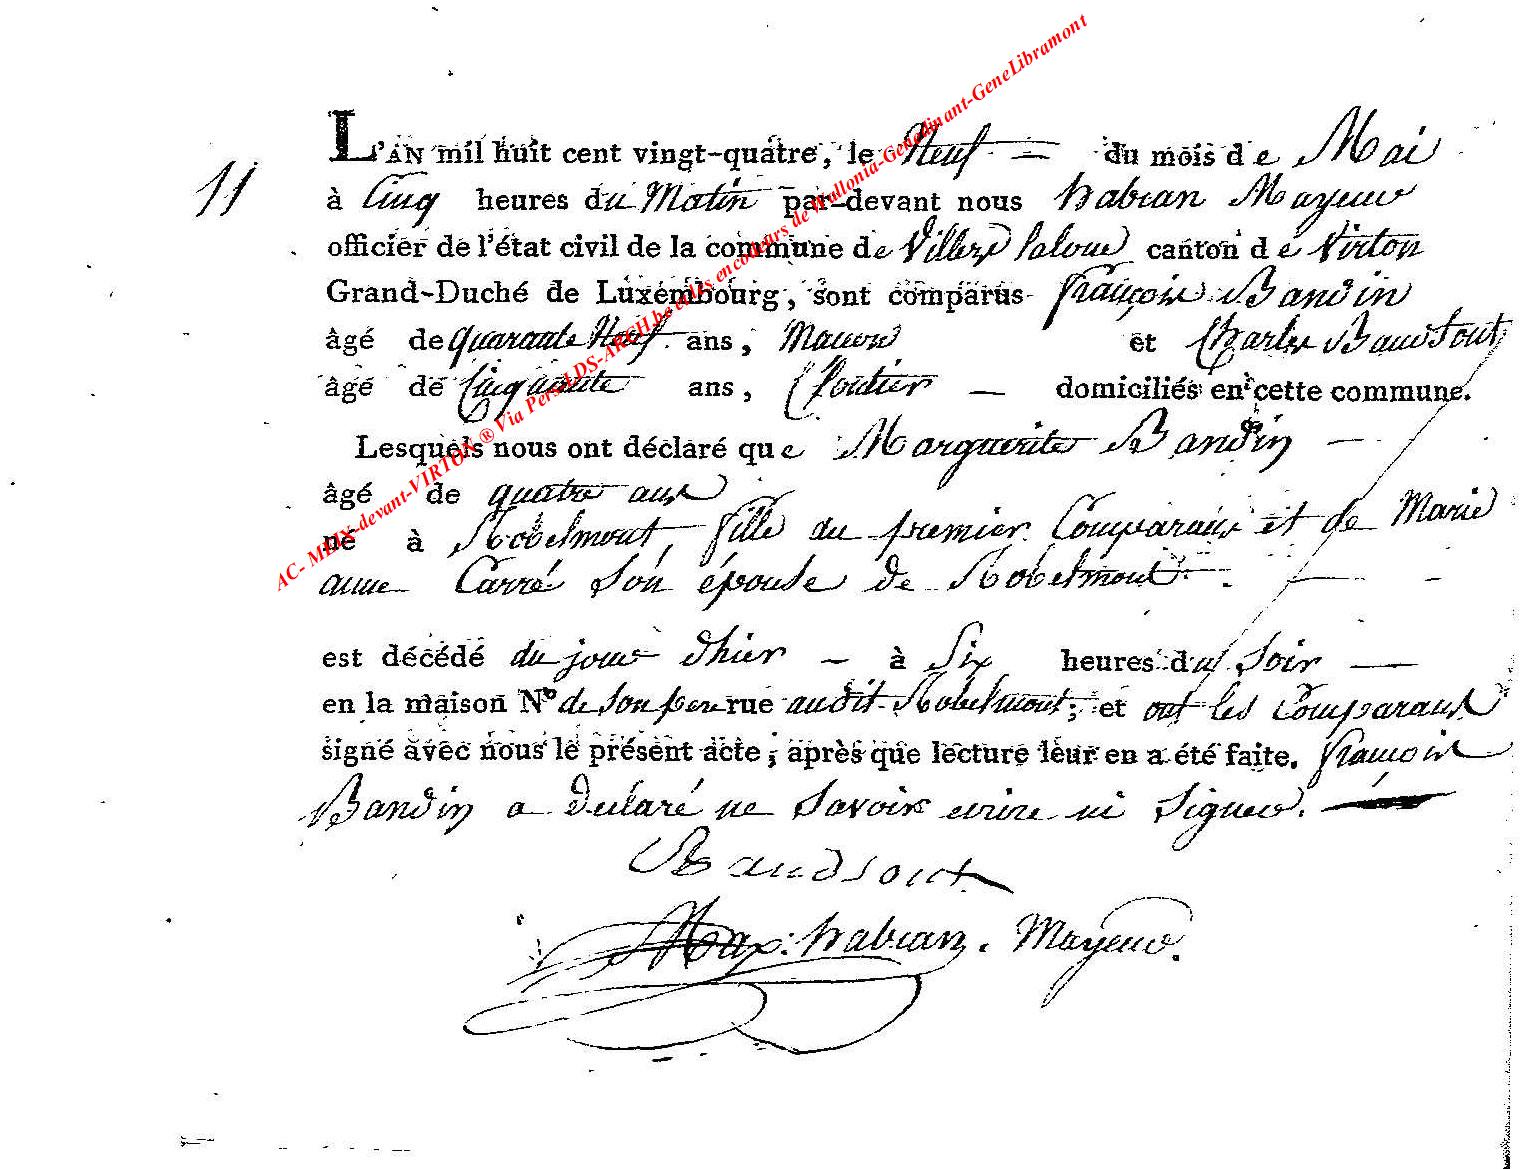 11
L'AN mil huit cent vingt-quatre, le Neuf — du mois de Mai
à Cinq heures du Matin par-devant nous habran Mayeur
officier de l'état civil de la commune de Villers laloue canton de Virton
Grand-Duché de Luxembourg, sont comparus françois Bandin
âgé de quarante Neuf ans, Macon et Charles Baudsout
âgé de Cinquante ans, Cloutier — domiciliés en cette commune.
Lesquels nous ont déclaré que Marguerite Bandin —
âgé de quatre ans
né à Robelmont, fille du premier Comparant et de Marie
anne Carré son épouse de Robelmont. — -
est décédé du jour d'hier — à Six heures du Soir —
en la maison N° de son pere rue audit Robelmont; et ont les Comparans
signé avec nous le présent acte; après que lecture leur en a été faite. françois
Bandin a declaré ne savoir ecrire ni signer. —
Baudsout
Max: habran. Mayeur.
AC- MEIX-devant-VIRTON ® Via Pers LDS-ARCH.be et les encodeurs de Wallonia-Genedinant-GeneLibramont